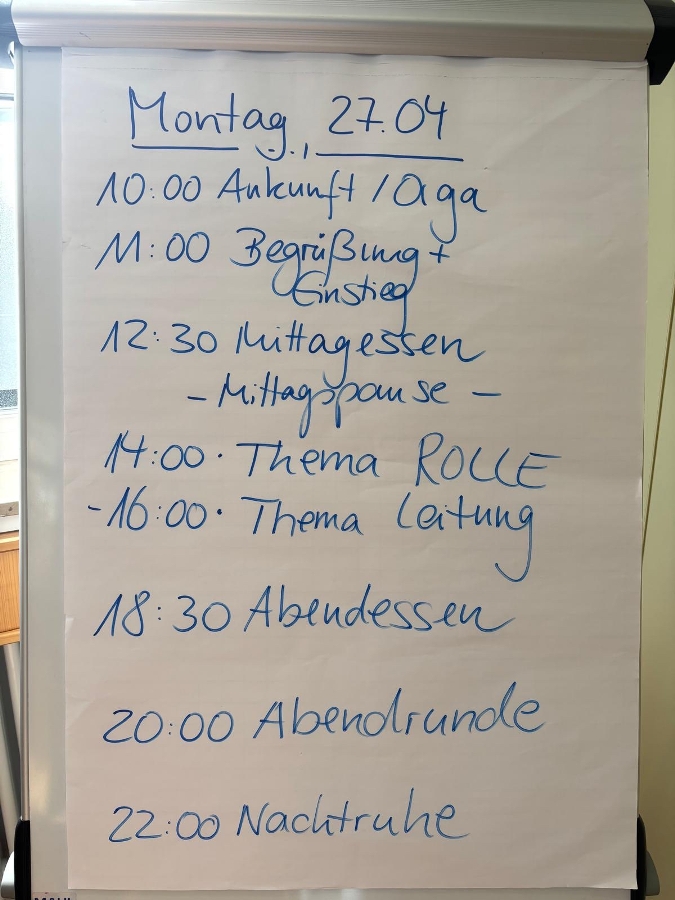 Montag, 27.04
10:00 Ankunft / Orga
11:00 Begrüßung +
Einstieg
12:30 Mittagessen
- Mittagspause -
14:00 · Thema ROLLE
-16:00 · Thema Leitung
18:30 Abendessen
20:00 Abendrunde
22:00 Nachtruhe